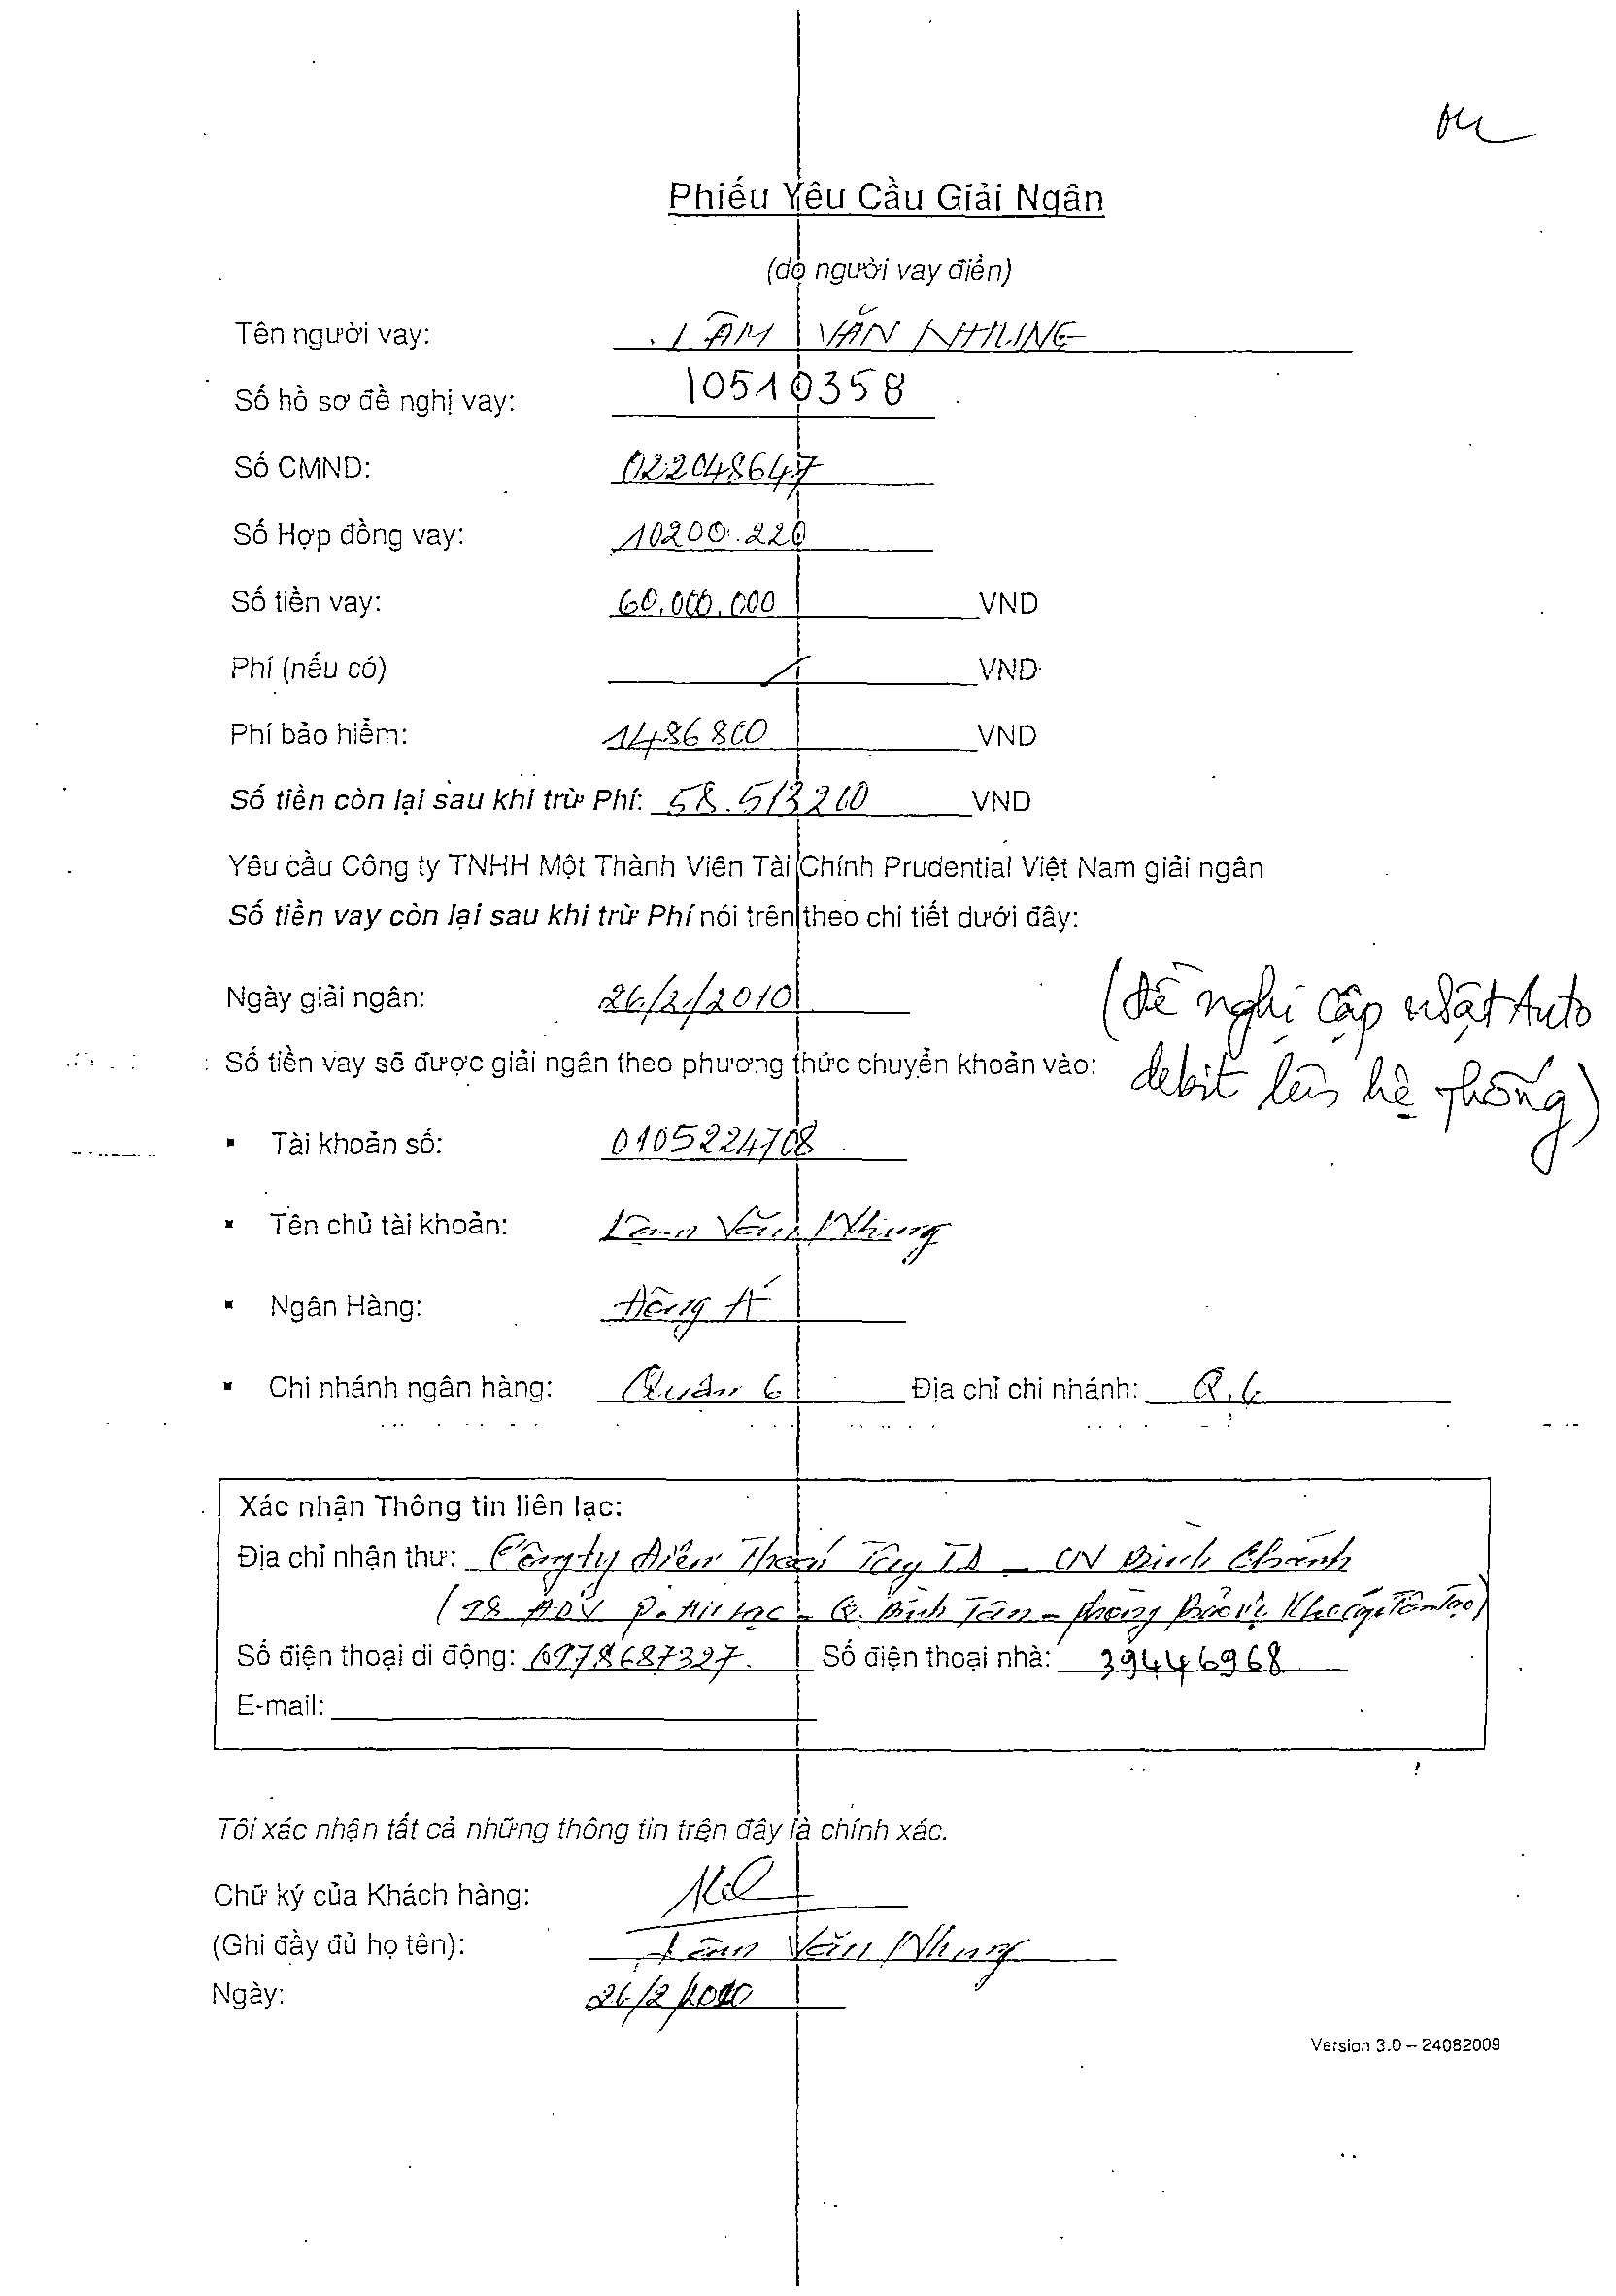 Phiếu Yêu Cầu Giải Ngân
(do người vay điền)
Tên người vay: LÂM VĂN NHUNG
Số hồ sơ đề nghị vay: 10510358
Số CMND: 022048647
Số Hợp đồng vay: 10200.220
Số tiền vay: 60.000.000 VND
Phí (nếu có) VND
Phí bảo hiểm: 1486800 VND
Số tiền còn lại sau khi trừ Phí: 58.513200 VND
Yêu cầu Công ty TNHH Một Thành Viên Tài Chính Prudential Việt Nam giải ngân
Số tiền vay còn lại sau khi trừ Phí nói trên theo chi tiết dưới đây:
Ngày giải ngân: 26/2/2010
(Đề nghị cập nhật Auto
debit lên hệ thống)
Số tiền vay sẽ được giải ngân theo phương thức chuyển khoản vào:
▪ Tài khoản số: 0105224708
▪ Tên chủ tài khoản: Lâm Văn Nhung
▪ Ngân Hàng: Đông Á
▪ Chi nhánh ngân hàng: Quận 6 Địa chỉ chi nhánh: Q.6
Xác nhận Thông tin liên lạc:
Địa chỉ nhận thư: Công ty Điện Thoại Tây TP - CN Bình Chánh
(18 ADV P. An Lạc - Q. Bình Tân - phòng Bảo vệ Tân Tạo)
Số điện thoại di động: 0978687327. Số điện thoại nhà: 39446968
E-mail:
Tôi xác nhận tất cả những thông tin trên đây là chính xác.
Chữ ký của Khách hàng:
(Ghi đầy đủ họ tên): Lâm Văn Nhung
Ngày: 26/2/2010
Version 3.0 – 24082009